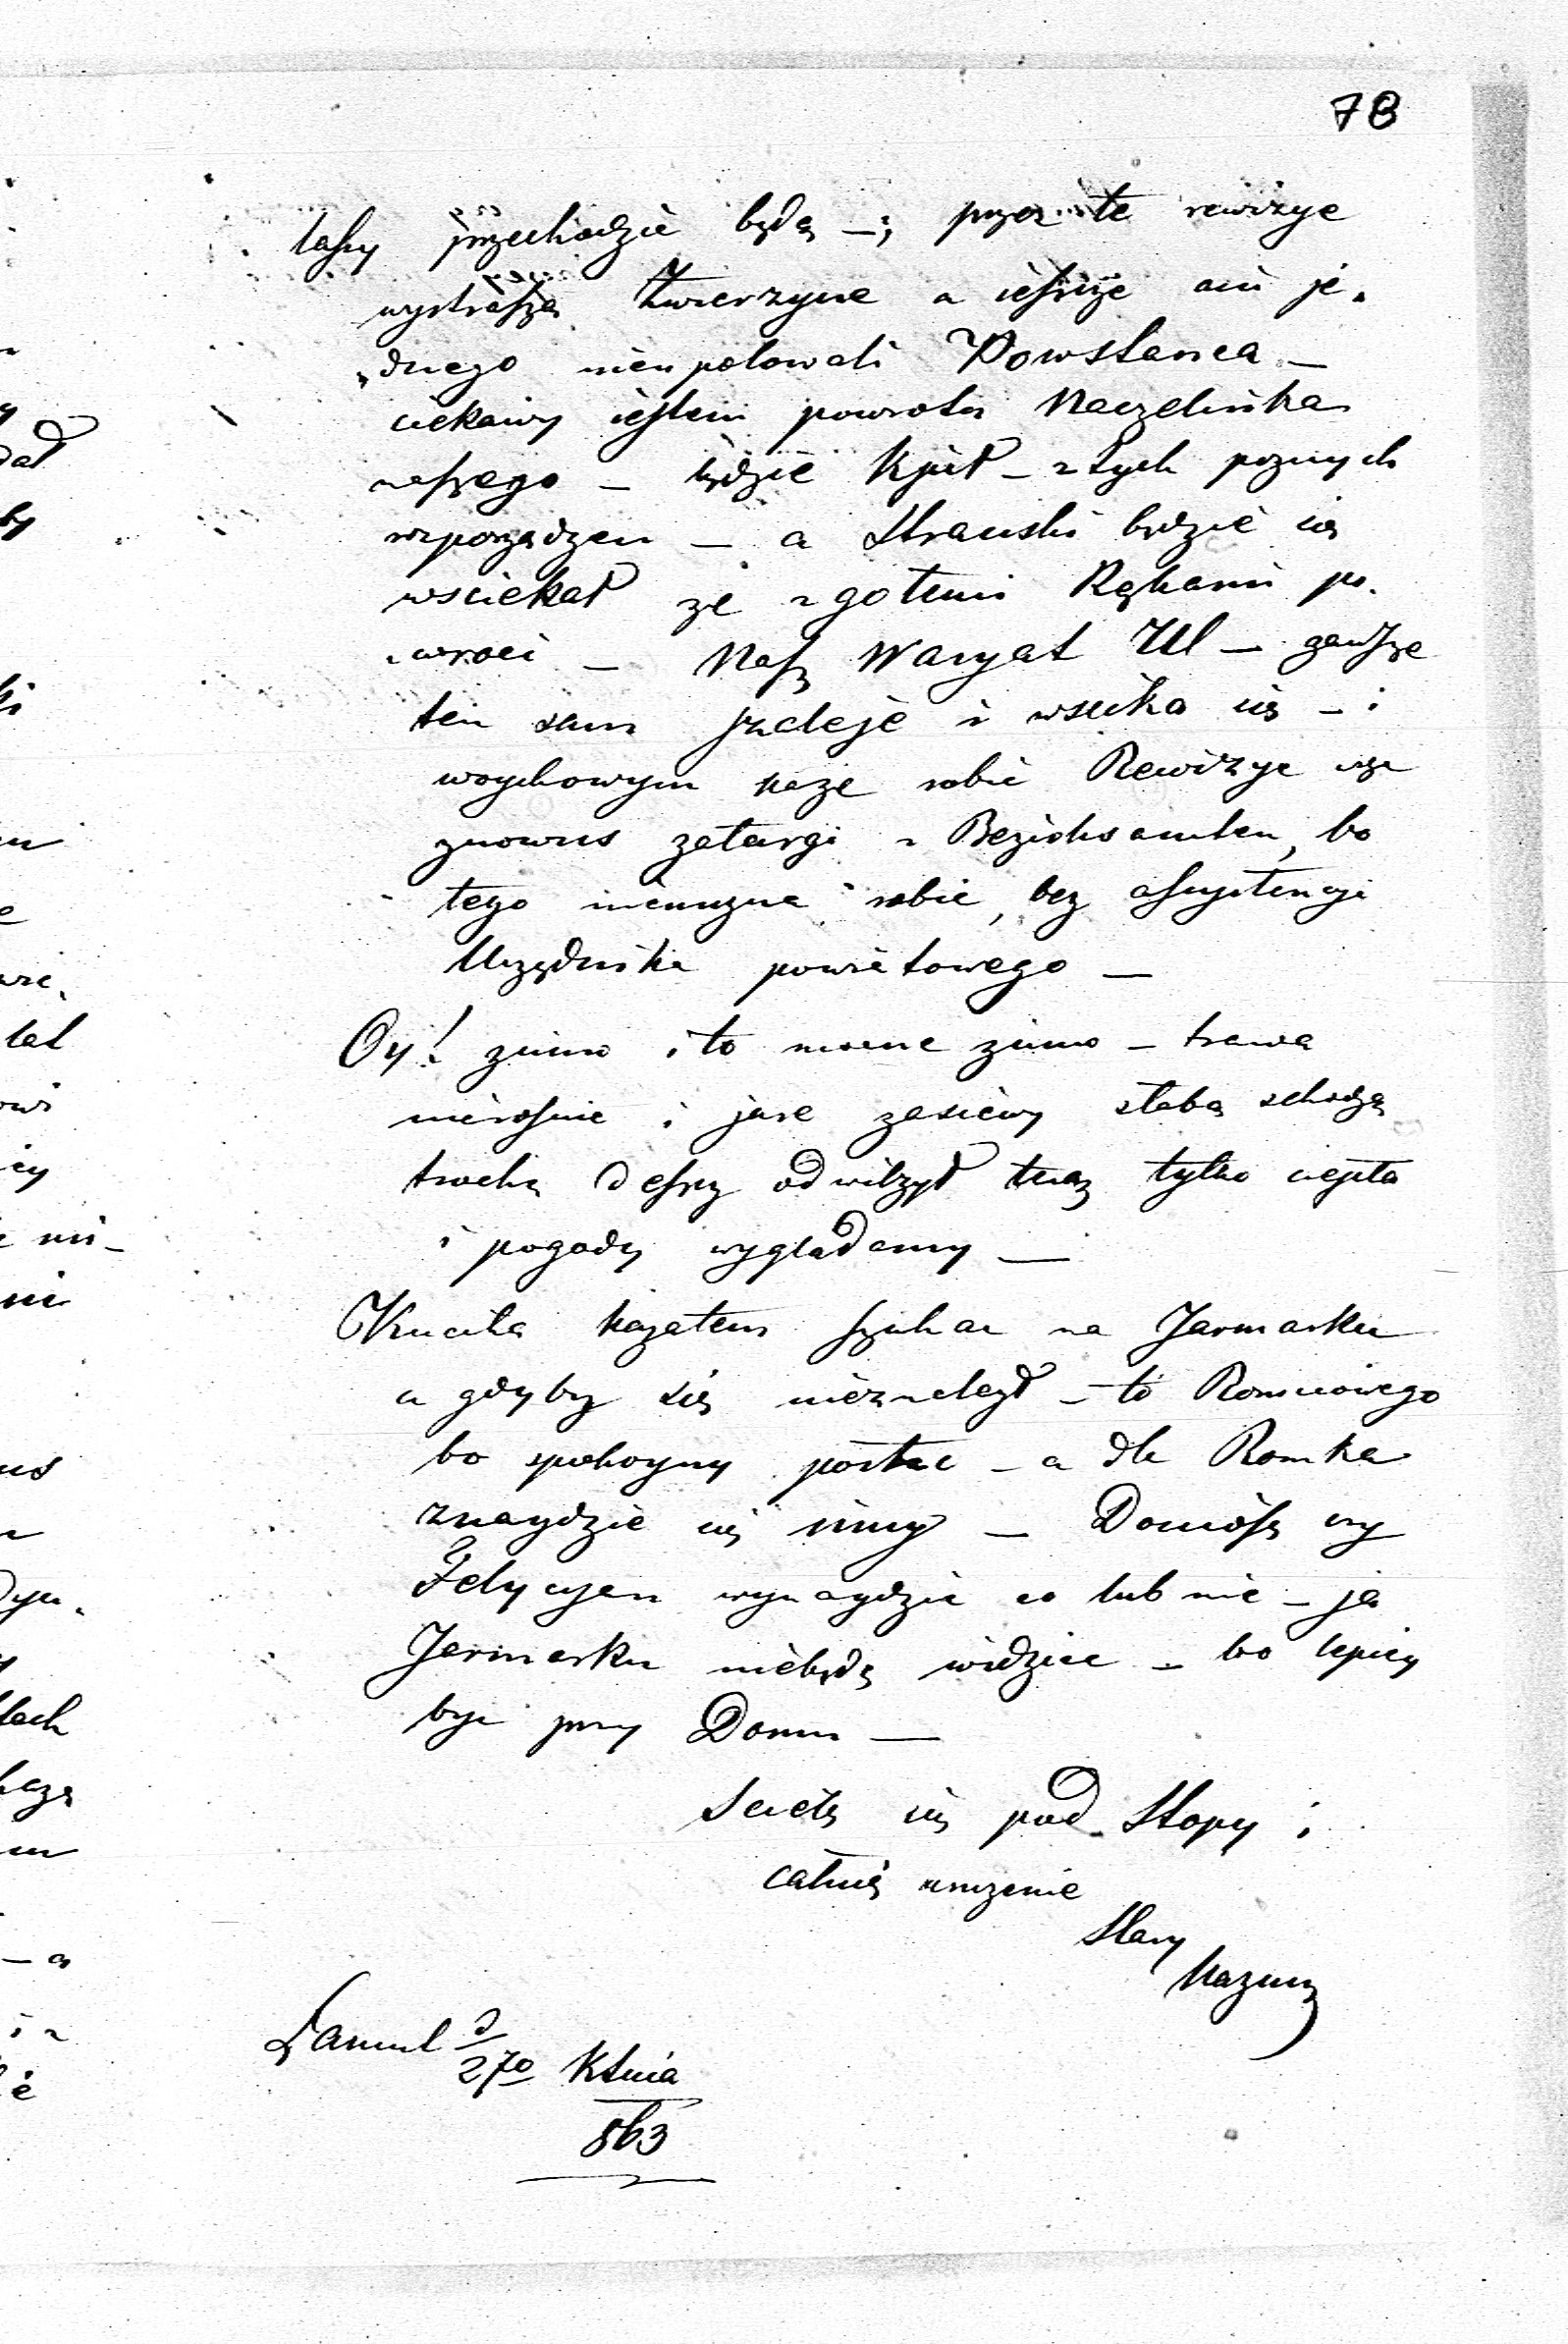 78
lasy przechodzić będą —; przez te rewizye
wystraszą Zwierzynę a jeszcze ani je„
„dnego nieupolowali Powstańca —
ciekawy jestem powrotu Naczelnika
naszego — będzie Kpił — z tych poznych
rozporządzeń — a Strański będzie się
wsciekał że z gołemi Rękami po„
„wróci — Nasz Waryat Ul — zawsze
ten sam szaleje i wscieka się — i
woyskowym każe robic Rewizye
znowus zatargi z Bezirksamtem, bo
tego niemożna robic, bez assystencyi
Urzędnika powiatowego —
Oy! zimno i to mocne zimno — trawa
nierośnie i jare zasiewy słabo schodzą
trochę Deszcz odwilżył teraz tylko ciepła
i pogody wyglądamy —
Kucyka kazałem szukac na Jarmarku
a gdyby się nieznalazł — to Romciowego
bo spokoyny posłac — a dla Romka
znaydzie się inny — Doniosę czy
Felicyan wynaydzie co lub nie — ja
Jarmarku niebędę widziec — bo lepiey
byc przy Domu —
Scielę się pod Stopy i
całuię uniżenie
Stary
Mazur
Łancut d
27º Ktnia
863